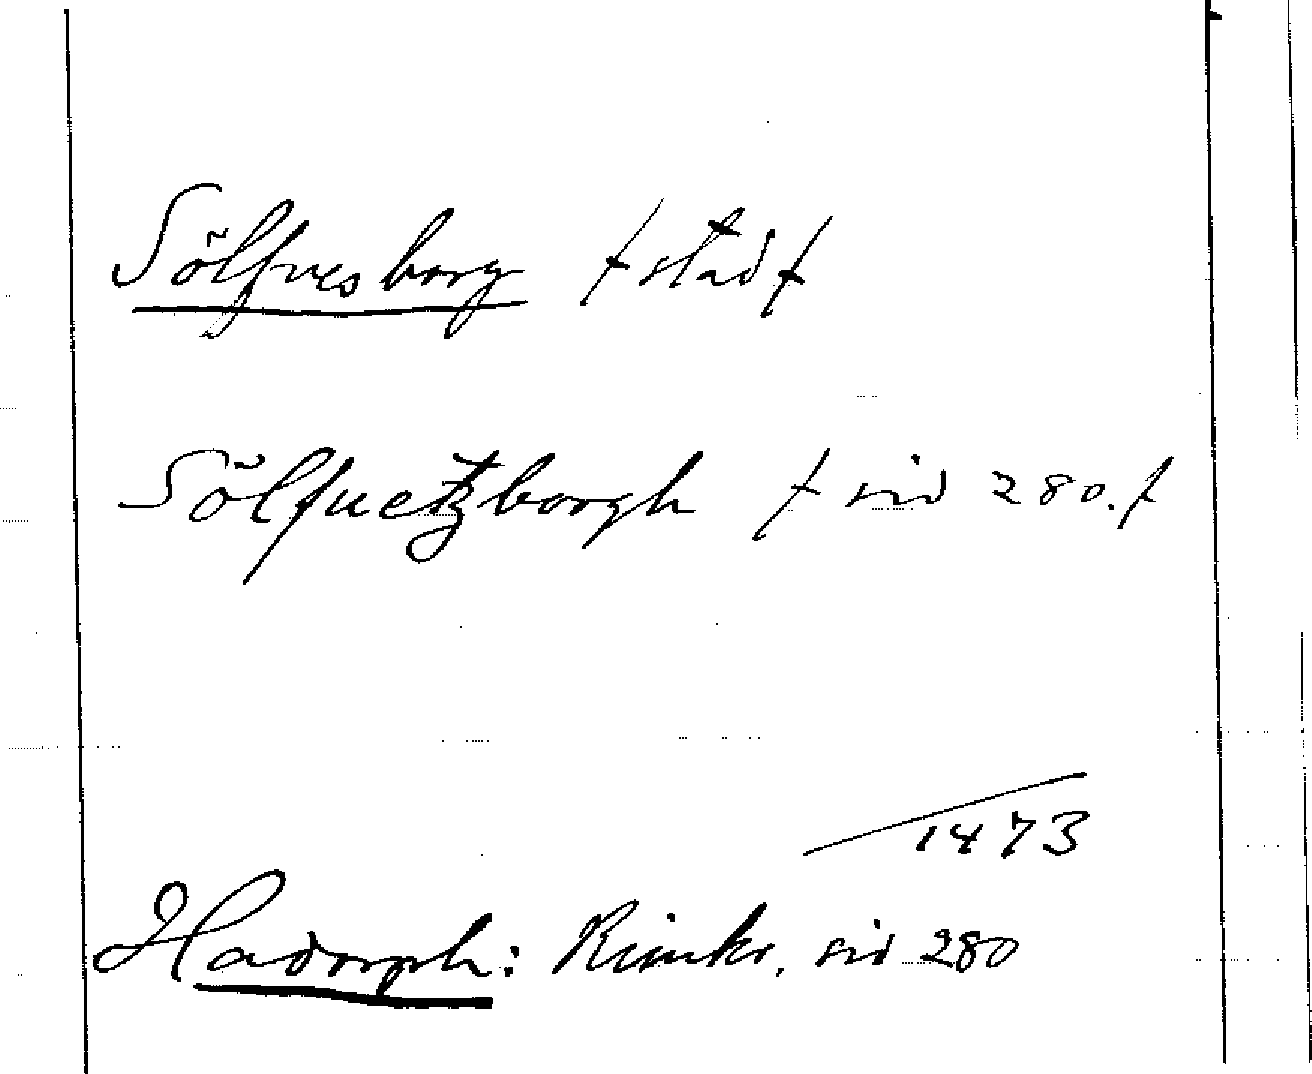 Sölfvesborg /stad/
Sölfuetzborgh / sid 280./
1473
Hadorph: Rimkr. sid 280